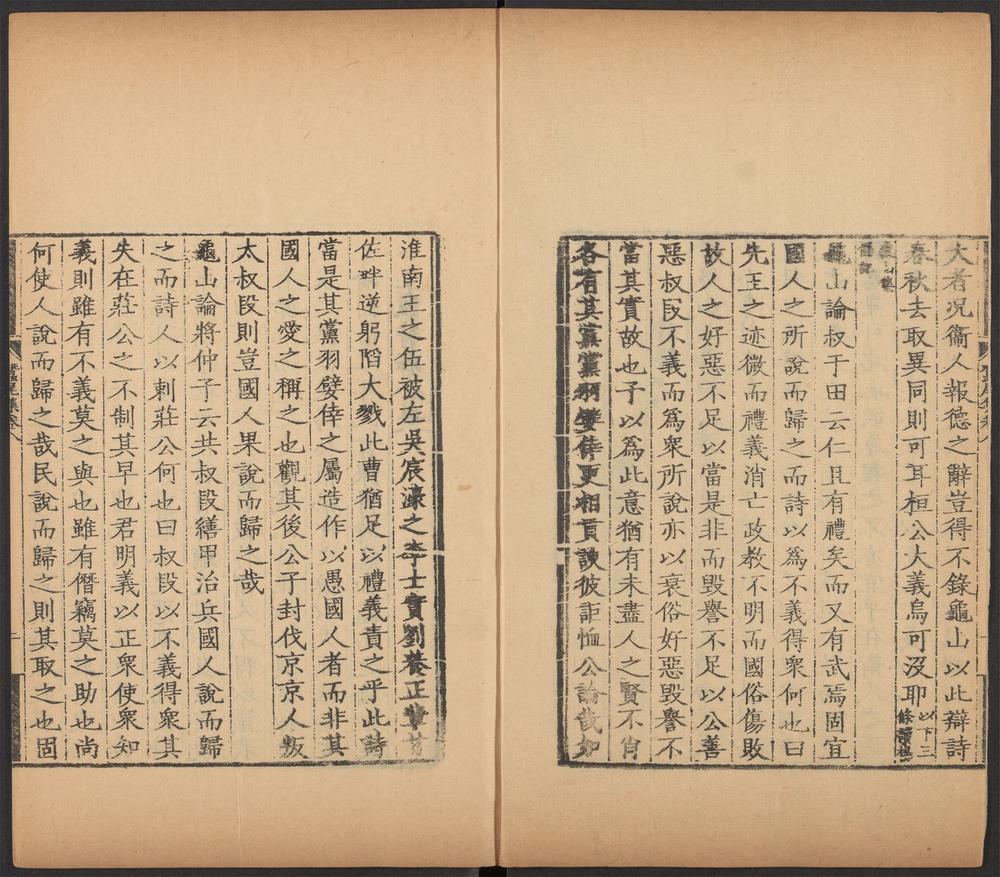 大者況衞人報德之辭豈得不錄龜山以此辯詩
春秋去取異同則可耳桓公大義烏可沒耶以下三
條讀
龜山集
龜山論叔于田云仁且有禮矣而又有武焉固宜
國人之所說而歸之而詩以爲不義得衆何也曰
先王之迹微而禮義消亡政教不明而國俗傷敗
故人之好惡不足以當是非而毀譽不足以公善
惡叔段不義而爲衆所說亦以衰俗好惡毀譽不
當其實故也予以爲此意猶有未盡人之賢不肖
各有其黨黨羽嬖倖更相貢諛彼詎恤公論哉如
淮南王之伍被左吳宸濠之李士實劉養正輩首
佐畔逆躬陷大戮此曹猶足以禮義責之乎此詩
當是其黨羽嬖倖之屬造作以愚國人者而非其
國人之愛之稱之也觀其後公子封伐京京人叛
太叔段則豈國人果說而歸之哉
龜山論將仲子云共叔段繕甲治兵國人說而歸
之而詩人以刺莊公何也曰叔段以不義得衆其
失在莊公之不制其早也君明義以正衆使衆知
義則雖有不義莫之與也雖有僭竊莫之助也尚
何使人說而歸之哉民說而歸之則其取之也固
集卷八